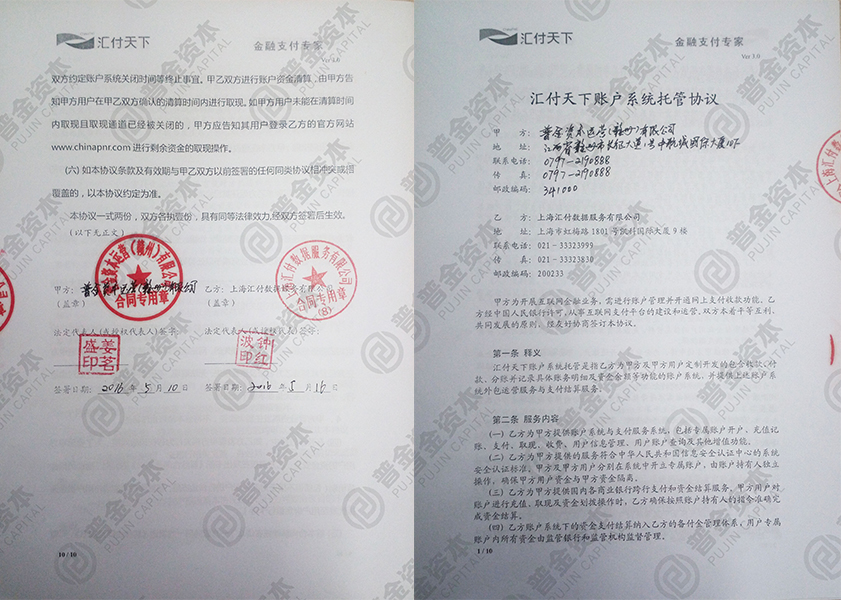 汇付天下
金融支付专家
Ver 3.0
双方约定账户系统关闭时间等终止事宜。甲乙双方进行账户资金清算，由甲方告
知甲方用户在甲乙双方确认的清算时间内进行取现。如甲方用户未能在清算时间
内取现且取现通道已经被关闭的，甲方应告知其用户登录乙方的官方网站
www.chinapnr.com 进行剩余资金的取现操作。
(六) 如本协议条款及有效期与甲乙双方以前签署的任何同类协议相冲突或擂
覆盖的，以本协议约定为准。
、本协议一式两份，双方各执壹份，具有同等法律效力,经双方签署后生效。
(以下无正文)
普金资本运营（赣州）有限公司
合同专用章
上海汇付数据服务有限公司
合同专用章
(8)
甲方：普金资本运营(赣州)有限公司
乙方：上海汇付数据服务有限公司
(盖章)
(盖章)
法定代表人(或授权代表人)签字：
法定代表人(或授权代表人)签字：
姜茗
盛印
钟红
波印
签署日期：2016 年 5 月 10 日
签署日期：2016 年 5 月 16 日
10 / 10
汇付天下
金融支付专家
Ver 3.0
汇付天下账户系统托管协议
甲 方：普金资本运营(赣州)有限公司
地 址：江西省赣州市长征大道1号中航城国际大厦10F
联系电话：0797-2190888
传 真：0797-2190888
邮政编码：341000
乙 方：上海汇付数据服务有限公司
地 址：上海市虹梅路 1801 号凯科国际大厦 9 楼
联系电话：021-33323999
传 真：021-33323830
邮政编码：200233
甲方为开展互联网金融业务，需进行账户管理并开通网上支付收款功能。乙
方经中国人民银行许可，从事互联网支付平台的建设和运营。双方本着平等互利、
共同发展的原则，经友好协商签订本协议。
第一条 释义
汇付天下账户系统托管是指乙方为甲方及甲方用户定制开发的包含收款、付
款、分账并记录具体账务明细及资金余额等功能的账户系统，并提供上述账户系
统外包运营服务与支付结算服务。
第二条 服务内容
(一) 乙方为甲方提供账户系统与支付服务系统，包括专属账户开户、充值记
账、支付、取现、收费、用户信息管理、用户账户查询及其他增值功能。
(二) 乙方为甲方提供的服务符合中华人民共和国信息安全认证中心的系统
安全认证标准。甲方及甲方用户分别在系统中开立专属账户，由账户持有人独立
操作，确保甲方用户资金与甲方资金隔离。
(三) 乙方为甲方提供国内各商业银行跨行支付和资金结算服务。甲方用户对
账户进行充值、取现及资金划拨操作时，乙方确保按照账户持有人的指令准确完
成资金结算。
(四) 乙方账户系统下的资金支付结算纳入乙方的备付金管理体系，用户专属
账户内所有资金由监管银行和监管机构监督管理。
1 / 10
上海汇付
普金资本
PUJIN CAPITAL